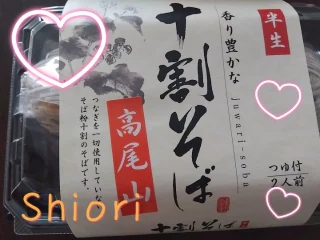 半生
香り豊かな
juwari-soba
十割そば
つなぎを一切使用していない
そば粉十割のそばです。
高尾山
つゆ付
2人前
Shiori
十割そば